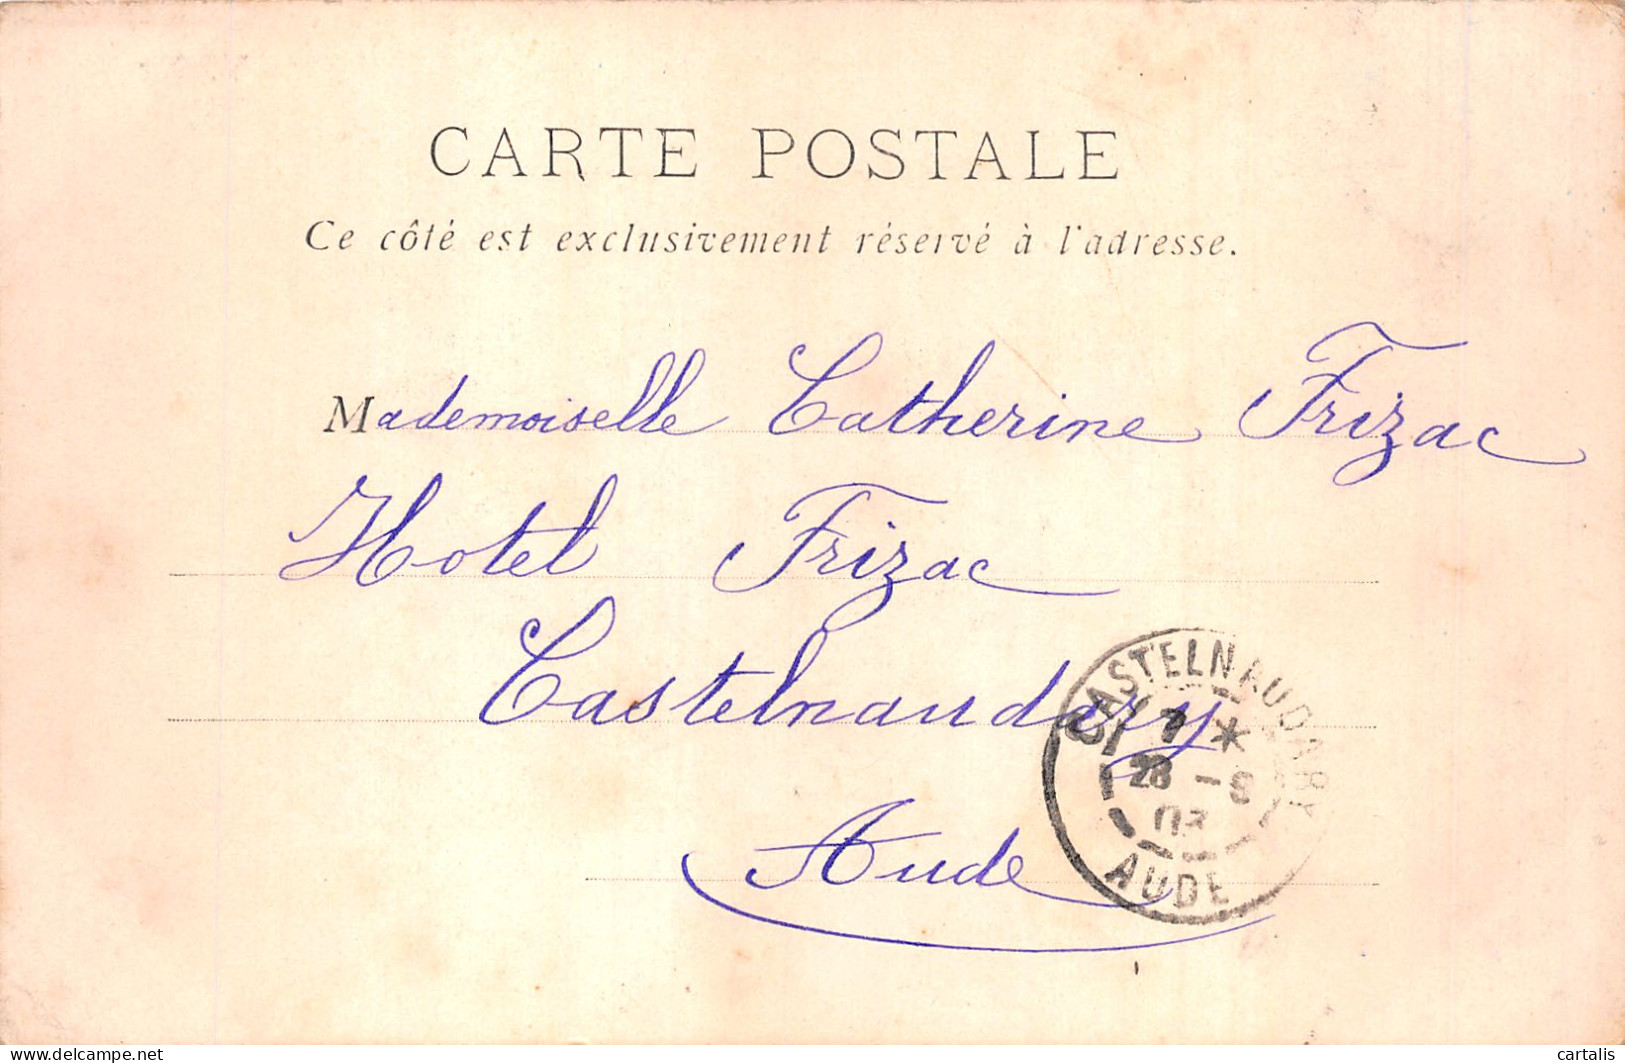 CARTE POSTALE
Ce côté est exclusivement réservé à l'adresse.
Mademoiselle Catherine Frizac
Hotel Frizac
Castelnaudary
Aude
CASTELNAUDARY
7 *
28 -9
03
AUDE
delcampe.net
cartalis